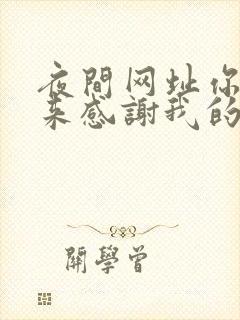 夜間网址你
来感謝我的
關學曾